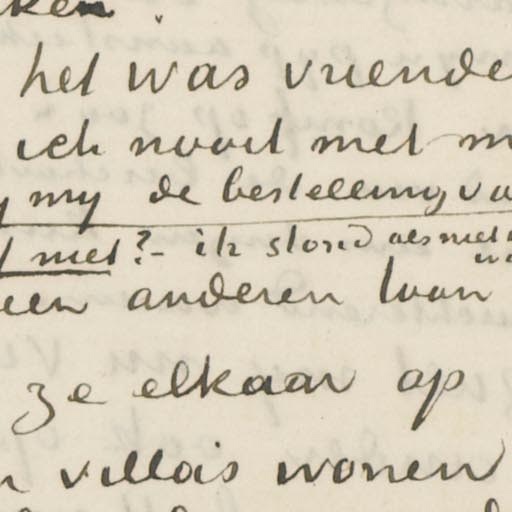 ken
het was vriende
ick nooit met m
y my de bestelling va
t niet?- ik stond als met
een anderen toon
ze elkaar op
n villa's wonen